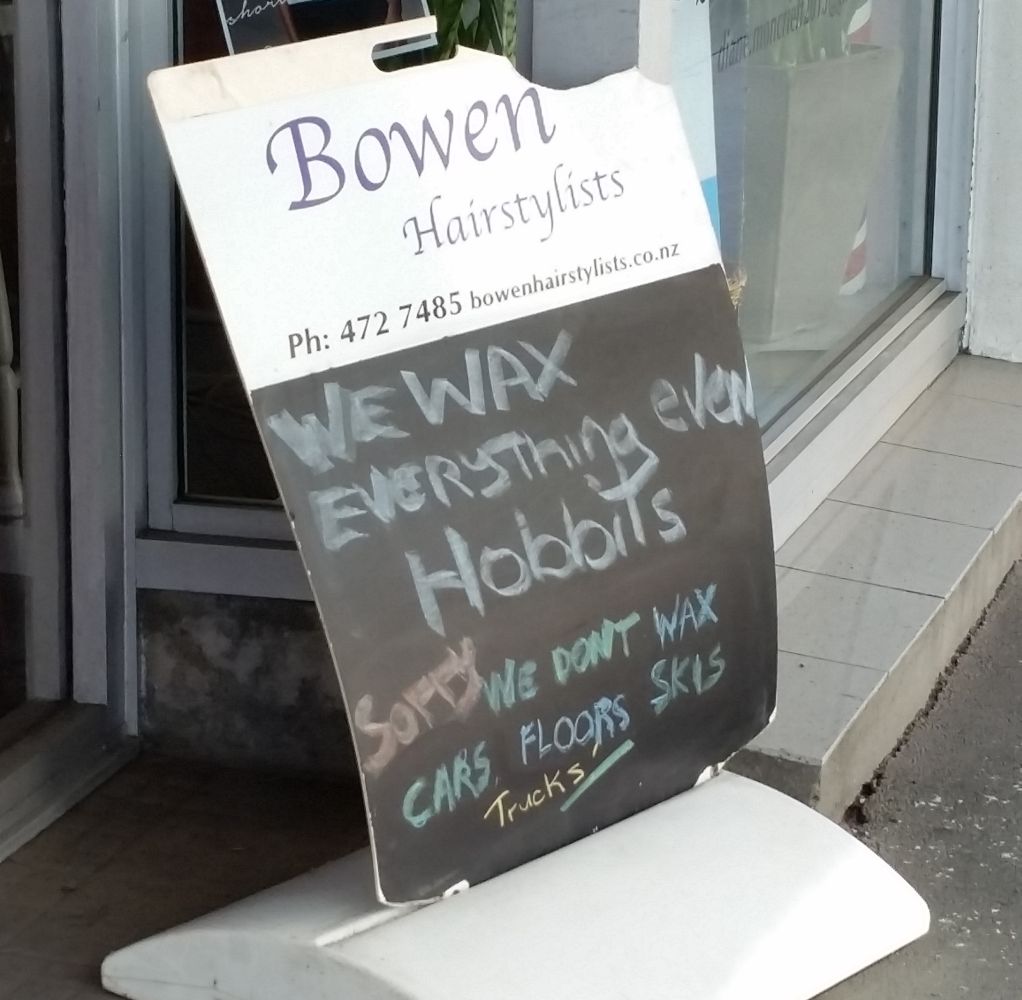 Bowen
Hairstylists
Ph: 472 7485 bowenhairstylists.co.nz
WE WAX
EVERYThing even
HobbiTs
SORRY WE DON'T WAX
CARS, FLOORS SKIS
Trucks